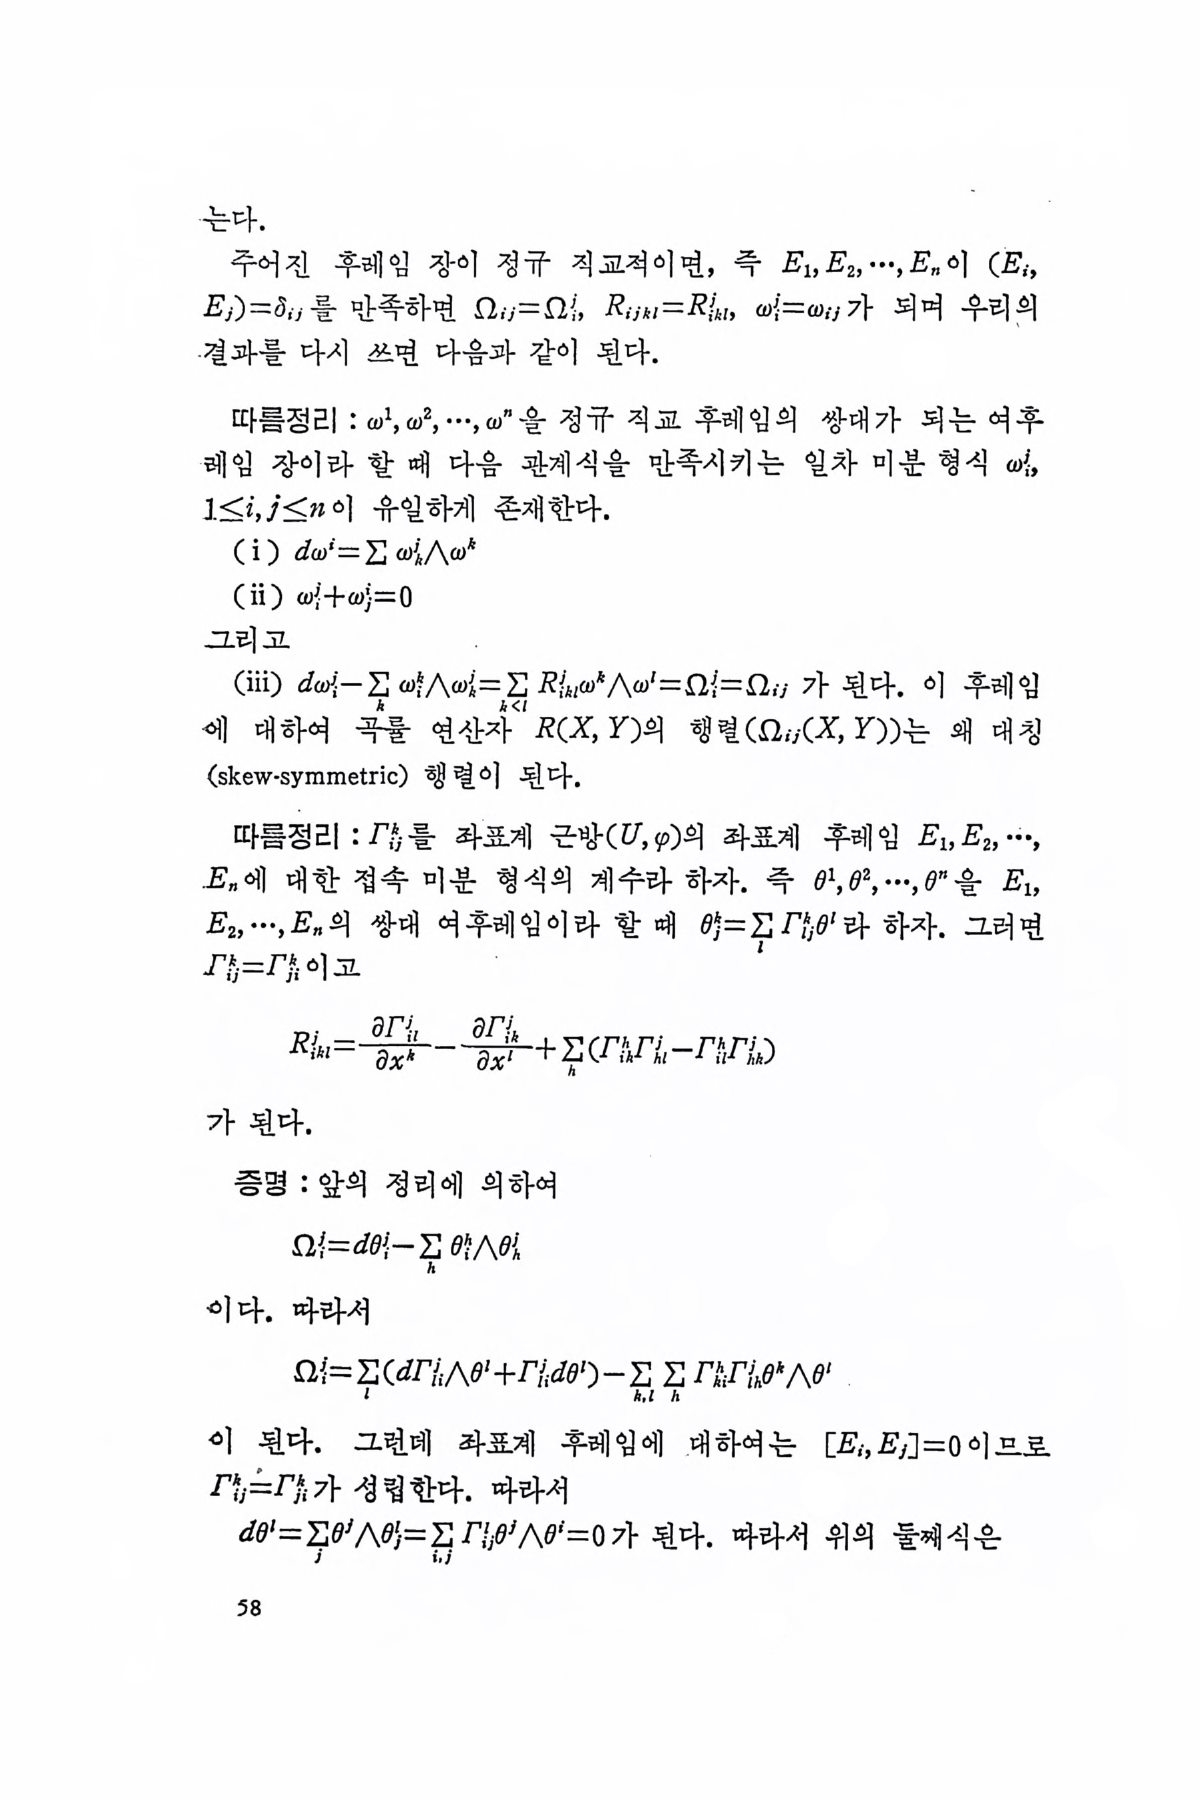 는다.
주어진 후레임 장이 정규 직교적이면, 즉 E₁, E₂, ⋯, Eₙ이 (Eᵢ,
Eⱼ)=δᵢⱼ를 만족하면 Ω_{ij}=Ω^j_i, R_{ijkl}=R^j_{ikl}, ω^j_i=ω_{ij}가 되며 우리의
결과를 다시 쓰면 다음과 같이 된다.
따름정리 : ω¹, ω², ⋯, ωⁿ을 정규 직교 후레임의 쌍대가 되는 여후
레임 장이라 할 때 다음 관계식을 만족시키는 일차 미분 형식 ω^j_i,
1≤i, j≤n이 유일하게 존재한다.
(i) dω^i=∑ ω^j_k∧ω^k
(ii) ω^j_i+ω^i_j=0
그리고
(iii) dω^j_i−∑_k ω^k_i∧ω^j_k=∑_{k<l} R^j_{ikl}ω^k∧ω^l=Ω^j_i=Ω_{ij} 가 된다. 이 후레임
에 대하여 곡률 연산자 R(X, Y)의 행렬(Ω_{ij}(X, Y))는 왜 대칭
(skew-symmetric) 행렬이 된다.
따름정리 : Γ^k_{ij}를 좌표계 근방(U, φ)의 좌표계 후레임 E₁, E₂, ⋯,
Eₙ에 대한 접속 미분 형식의 계수라 하자. 즉 θ¹, θ², ⋯, θⁿ을 E₁,
E₂, ⋯, Eₙ의 쌍대 여후레임이라 할 때 θ^k_j=∑_l Γ^k_{lj}θ^l라 하자. 그러면
Γ^k_{ij}=Γ^k_{ji}이고
R^j_{ikl}=∂Γ^j_{il}/∂x^k − ∂Γ^j_{ik}/∂x^l +∑_h(Γ^h_{ik}Γ^j_{hl}−Γ^h_{il}Γ^j_{hk})
가 된다.
증명 : 앞의 정리에 의하여
Ω^j_i=dθ^j_i−∑_h θ^h_i∧θ^j_h
이다. 따라서
Ω^j_i=∑_l(dΓ^j_{li}∧θ^l+Γ^j_{li}dθ^l)−∑_{k,l} ∑_h Γ^h_{ki}Γ^j_{lh}θ^k∧θ^l
이 된다. 그런데 좌표계 후레임에 대하여는 [Eᵢ, Eⱼ]=0이므로
Γ^k_{ij}=Γ^k_{ji}가 성립한다. 따라서
dθ^l=∑_jθ^j∧θ^l_j=∑_{i,j} Γ^l_{ij}θ^j∧θ^i=0가 된다. 따라서 위의 둘째식은
58